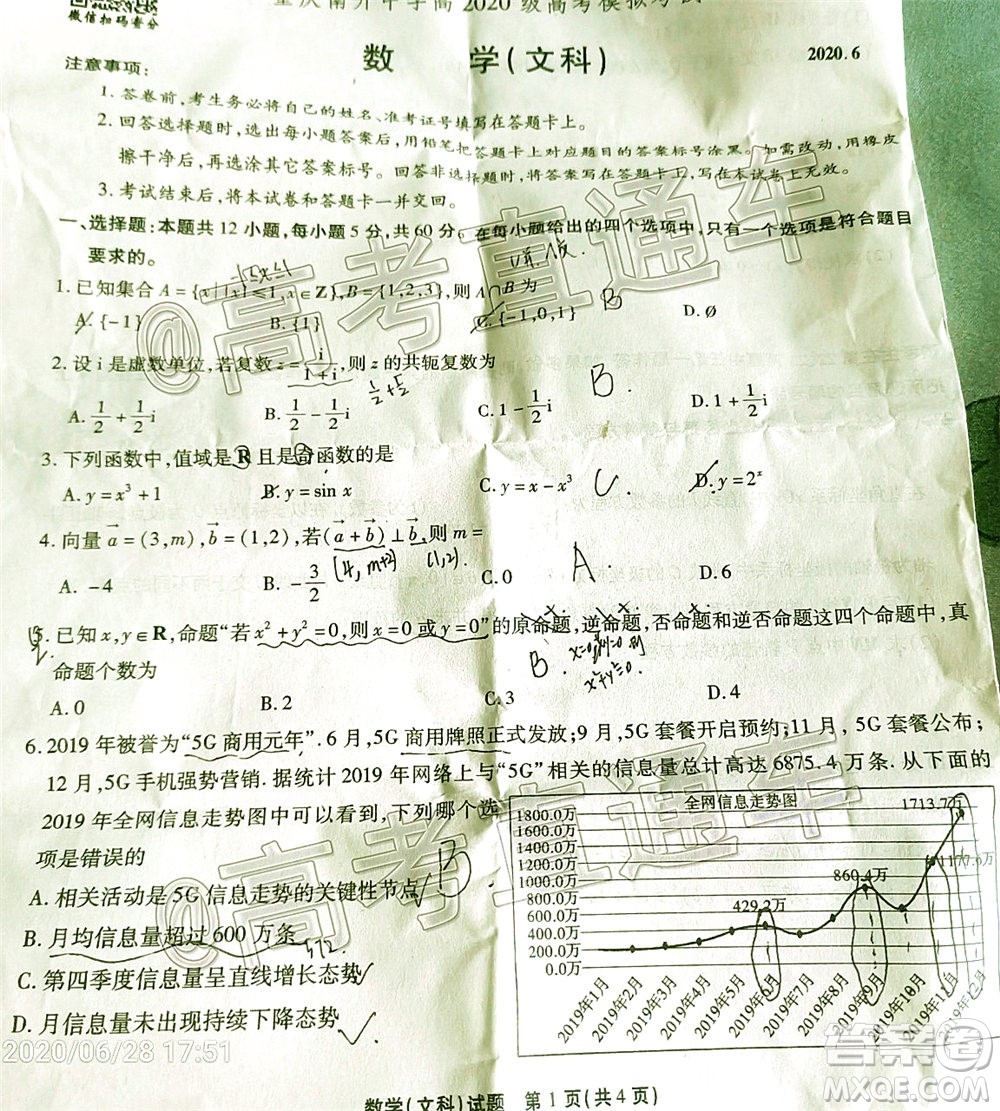 微信扫码赛分
重庆南开中学高2020级高考模拟考试
数 学(文科) 2020.6
注意事项:
1.答卷前,考生务必将自己的姓名、准考证号填写在答题卡上。
2.回答选择题时,选出每小题答案后,用铅笔把答题卡上对应题目的答案标号涂黑。如需改动,用橡皮
擦干净后,再选涂其它答案标号。回答非选择题时,将答案写在答题卡上,写在本试卷上无效。
3.考试结束后,将试卷和答题卡一并交回。
一、选择题:本题共12小题,每小题5分,共60分。在每小题给出的四个选项中,只有一个选项是符合题目
要求的。
1.已知集合A={x||x|≤1,x∈Z},B={1,2,3},则A∩B为 B
A.{-1} B.{1} C.{-1,0,1} D.∅
2.设i是虚数单位,若复数z=i/(1+i),则z的共轭复数为 B.
A.1/2+1/2i B.1/2-1/2i C.1-1/2i D.1+1/2i
3.下列函数中,值域是R且是奇函数的是
A.y=x³+1 B.y=sin x C.y=x-x³ C. D.y=2ˣ
4.向量a=(3,m),b=(1,2),若(a+b)⊥b,则m=
(4,m+2) (1,2) A.
A.-4 B.-3/2 C.0 D.6
5.已知x,y∈R,命题“若x²+y²=0,则x=0或y=0”的原命题,逆命题,否命题和逆否命题这四个命题中,真
命题个数为 B.
x²+y²=0.
A.0 B.2 C.3 D.4
6.2019年被誉为“5G商用元年”.6月,5G商用牌照正式发放;9月,5G套餐开启预约;11月,5G套餐公布;
12月,5G手机强势营销.据统计2019年网络上与“5G”相关的信息量总计高达6875.4万条.从下面的
2019年全网信息走势图中可以看到,下列哪个选
项是错误的 B
A.相关活动是5G信息走势的关键性节点
B.月均信息量超过600万条 572
C.第四季度信息量呈直线增长态势
D.月信息量未出现持续下降态势
全网信息走势图
1800.0万
1600.0万
1400.0万
1200.0万
1000.0万
800.0万
600.0万
400.0万
200.0万
0.0万
429.2万
860.4万
1177.6万
1713.7万
2019年1月
2019年2月
2019年3月
2019年4月
2019年5月
2019年6月
2019年7月
2019年8月
2019年9月
2019年10月
2019年11月
2019年12月
2020/06/28 17:51
数学(文科)试题 第1页(共4页)
@高考直通车
@高考直通车
答案圈
MXQE.COM